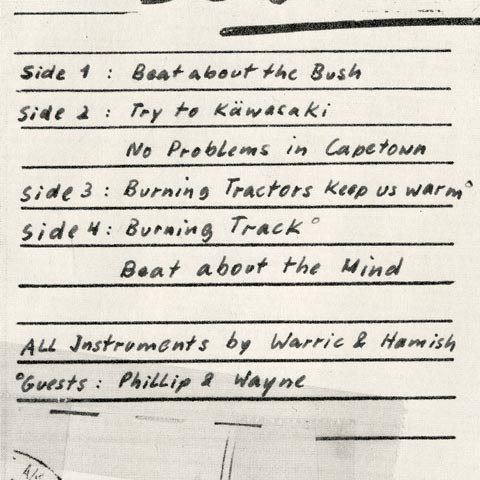 Side 1 : Beat about the Bush
Side 2 : Try to Käwasaki
No Problems in Capetown
Side 3 : Burning Tractors Keep us warm°
Side 4 : Burning Track°
Beat about the Mind
ALL Instruments by Warric & Hamish
°Guests : Phillip & Wayne